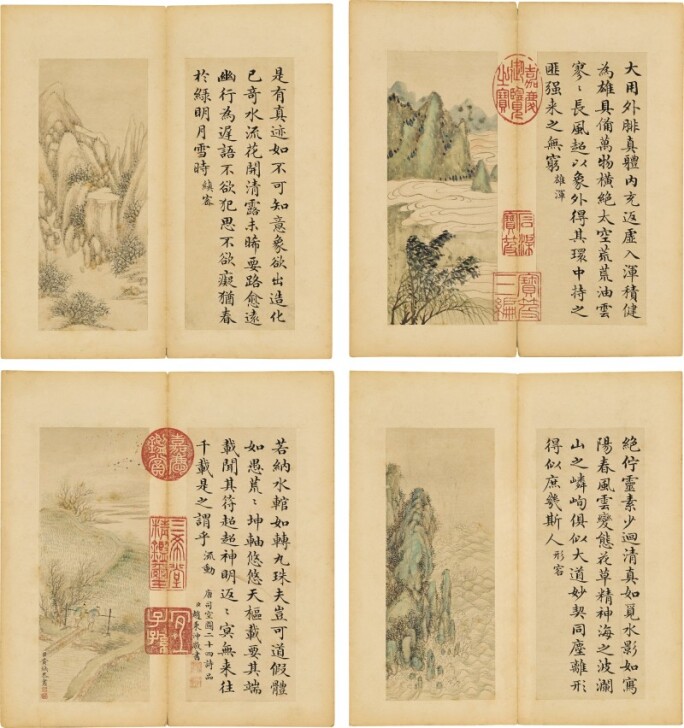 是有真迹如不可知意象欲出造化
已奇水流花開清露未晞要路愈遠
幽行為遲語不欲犯思不欲癡猶春
於綠明月雪時 縝密
大用外腓真體內充返虛入渾積健
為雄具備萬物橫絕太空荒荒油雲
寥〻長風超以象外得其環中持之
匪强来之無窮 雄渾
嘉慶御覽之寶
石渠寶笈
寶笈三編
若納水輨如轉丸珠夫豈可道假體
如愚荒〻坤軸悠悠天樞載要其端
載聞其符超超神明返〻冥無来往
千載是之謂乎 流動
唐司空圖二十四詩品
臣趙秉沖敬書
嘉慶鑑賞
三希堂精鑑璽
宜子孫
絕佇靈素少迴清真如覓水影如寫
陽春風雲變態花草精神海之波瀾
山之嶙峋俱似大道妙契同塵離形
得似庶幾斯人 形容